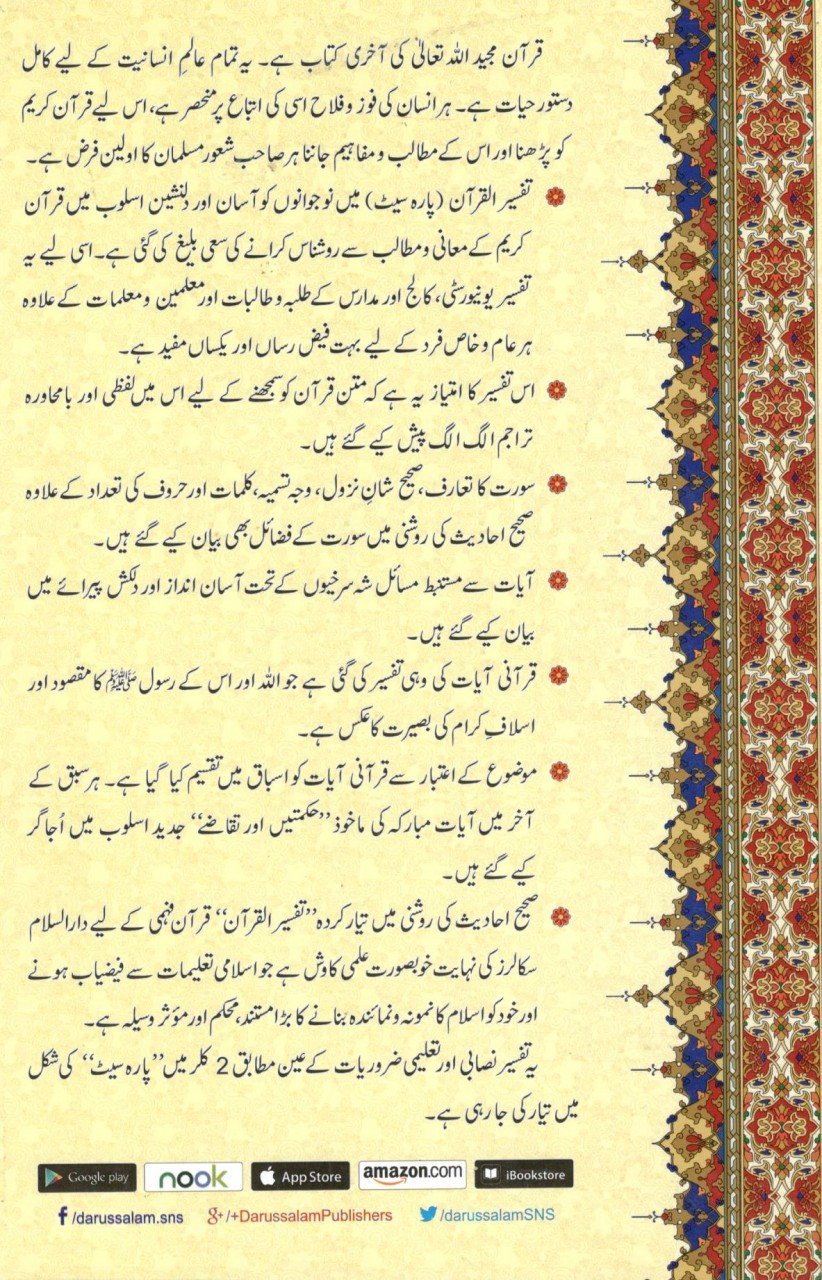 قرآن مجید اللہ تعالیٰ کی آخری کتاب ہے۔ یہ تمام عالمِ انسانیت کے لیے کامل
دستور حیات ہے۔ ہر انسان کی فوز و فلاح اسی کی اتباع پر منحصر ہے، اس لیے قرآن کریم
کو پڑھنا اور اس کے مطالب و مفاہیم جاننا ہر صاحب شعور مسلمان کا اولین فرض ہے۔
تفسیر القرآن (پارہ سیٹ) میں نوجوانوں کو آسان اور دلنشین اسلوب میں قرآن
کریم کے معانی و مطالب سے روشناس کرانے کی سعی بلیغ کی گئی ہے۔ اسی لیے یہ
تفسیر یونیورسٹی، کالج اور مدارس کے طلبہ و طالبات اور معلمین و معلمات کے علاوہ
ہر عام و خاص فرد کے لیے بہت فیض رساں اور یکساں مفید ہے۔
اس تفسیر کا امتیاز یہ ہے کہ متن قرآن کو سمجھنے کے لیے اس میں لفظی اور بامحاورہ
تراجم الگ الگ پیش کیے گئے ہیں۔
سورت کا تعارف، صحیح شانِ نزول، وجہ تسمیہ، کلمات اور حروف کی تعداد کے علاوہ
صحیح احادیث کی روشنی میں سورت کے فضائل بھی بیان کیے گئے ہیں۔
آیات سے مستنبط مسائل شہ سرخیوں کے تحت آسان انداز اور دلکش پیرائے میں
بیان کیے گئے ہیں۔
قرآنی آیات کی وہی تفسیر کی گئی ہے جو اللہ اور اس کے رسول ﷺ کا مقصود اور
اسلافِ کرام کی بصیرت کا عکس ہے۔
موضوع کے اعتبار سے قرآنی آیات کو اسباق میں تقسیم کیا گیا ہے۔ ہر سبق کے
آخر میں آیات مبارکہ کی ماخوذ ”حکمتیں اور تقاضے“ جدید اسلوب میں اُجاگر
کیے گئے ہیں۔
صحیح احادیث کی روشنی میں تیار کردہ ”تفسیر القرآن“ قرآن فہمی کے لیے دارالسلام
سکالرز کی نہایت خوبصورت علمی کاوش ہے جو اسلامی تعلیمات سے فیضیاب ہونے
اور خود کو اسلام کا نمونہ و نمائندہ بنانے کا بڑا مستند، محکم اور مؤثر وسیلہ ہے۔
یہ تفسیر نصابی اور تعلیمی ضروریات کے عین مطابق 2 کلر میں ”پارہ سیٹ“ کی شکل
میں تیار کی جا رہی ہے۔
Google play nook App Store amazon.com iBookstore
f /darussalam.sns g+ /+DarussalamPublishers /darussalamSNS